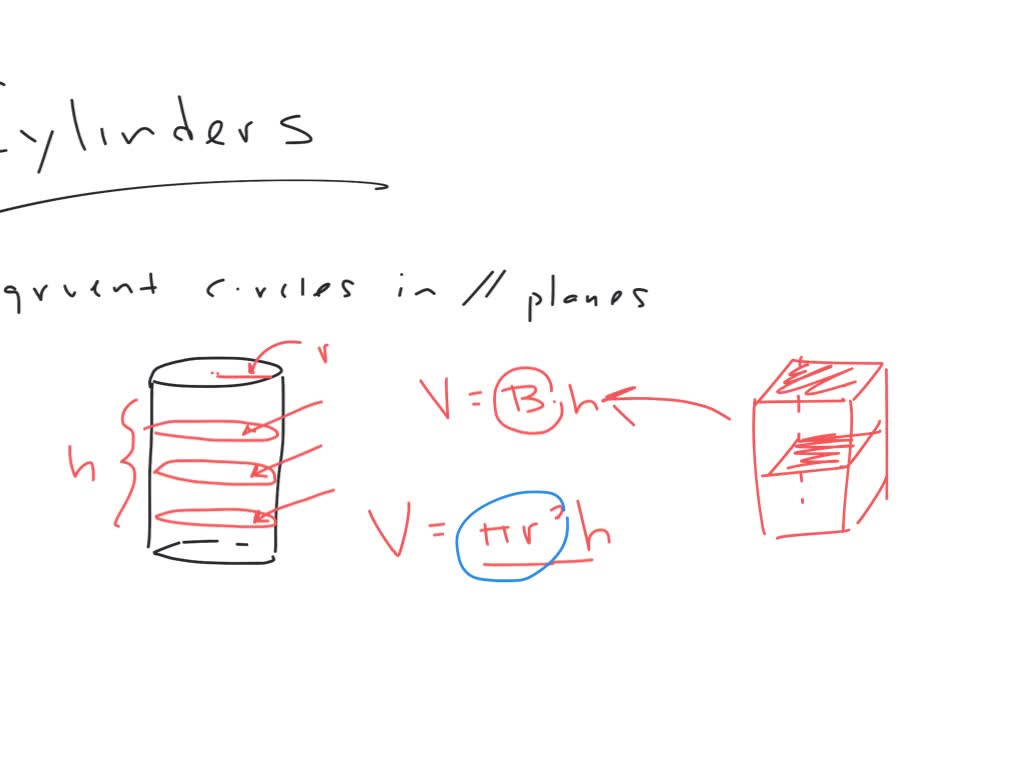 Cylinders
gruent circles in // planes
r
V = B · h
h
V = πr² h